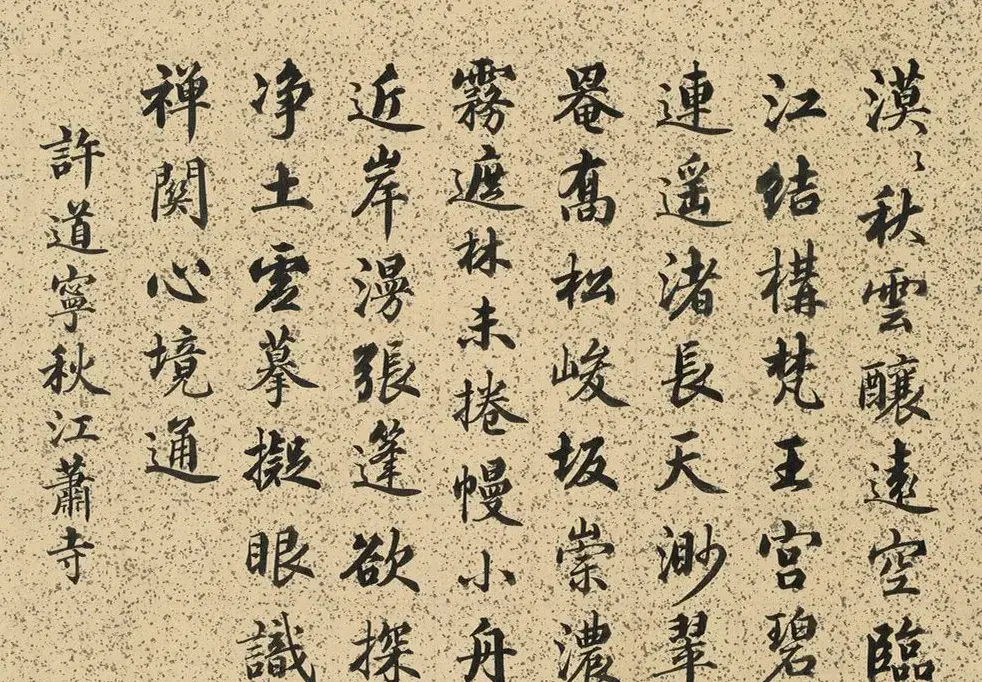 漠〻秋雲釀遠空臨
江結構梵王宮碧
連遥渚長天渺翠
罨髙松峻坂崇濃
霧遮林未捲幔小舟
近岸漫張篷欲探
净土雲摹擬眼識
禅関心境通
許道寧秋江蕭寺